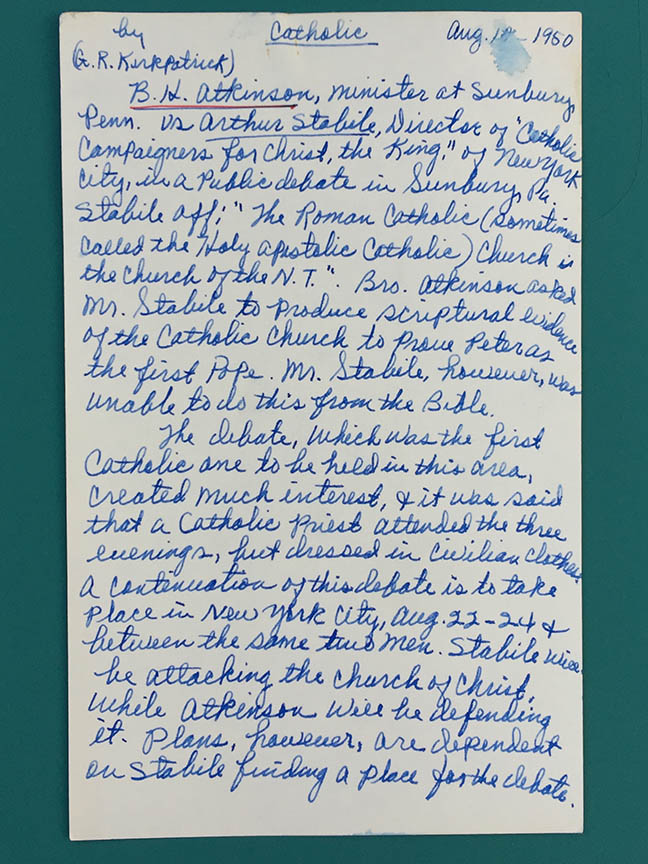 by Catholic Aug. 1950
(G. R. Kirkpatrick)
B. H. Atkinson, minister at Sunbury,
Penn. vs Arthur Stabile, Director of "Catholic
Campaigners for Christ, the King," of New York
City, in a Public debate in Sunbury, Pa.
Stabile aff; "The Roman Catholic (sometimes
called the Holy apostolic Catholic) Church is
the church of the N.T.". Bro. Atkinson asked
Mr. Stabile to produce scriptural evidence
of the Catholic Church to prove Peter as
the first Pope. Mr. Stabile, however, was
unable to do this from the Bible.
The debate, which was the first
Catholic one to be held in this area,
created much interest, & it was said
that a Catholic Priest attended the three
evenings, but dressed in civilian clothes.
A continuation of this debate is to take
place in New York City, Aug. 22-24 &
between the same two men. Stabile will
be attacking the church of Christ,
while Atkinson will be defending
it. Plans, however, are dependent
on Stabile finding a place for the debate.